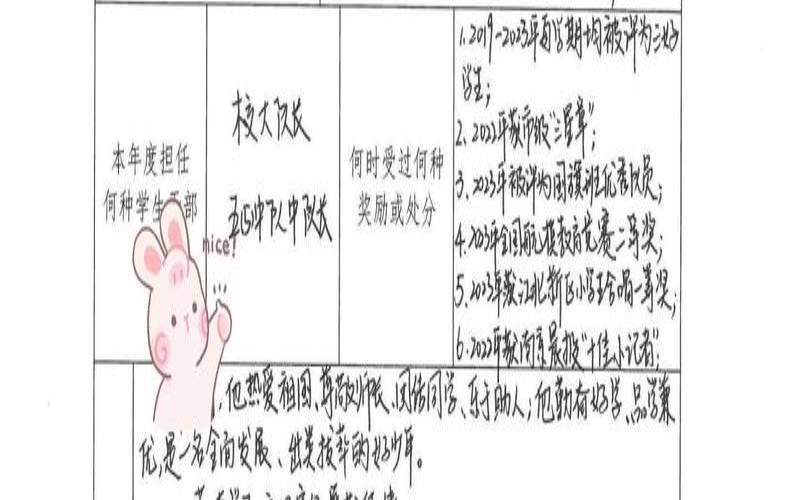 本年度担任
何种学生干部
校大队长
五(5)中队中队长
nice!
何时受过何种
奖励或处分
1.2019-2023年每学期均被评为三好
学生;
2.2022年获市级"三星章";
3.2023年被评为国旗班优秀队员;
4.2023年全国航模教育竞赛二等奖;
5.2023年获江北新区小学生合唱一等奖;
6.2022年获南京晨报"十佳小记者"
他热爱祖国、尊敬师长、团结同学、乐于助人;他勤奋好学、品学兼
优,是一名全面发展、出类拔萃的好少年。